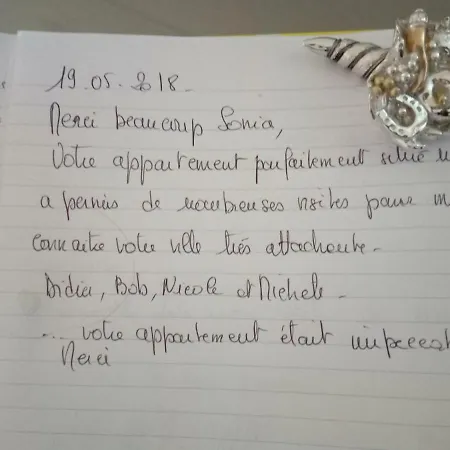 19.05.2018.
Merci beaucoup Sonia,
Votre appartement parfaitement situé
a permis de nombreuses visites pour
connaitre votre ville très attachante.
Didier, Bob, Nicole et Michele.
... votre appartement était impeccab
Merci